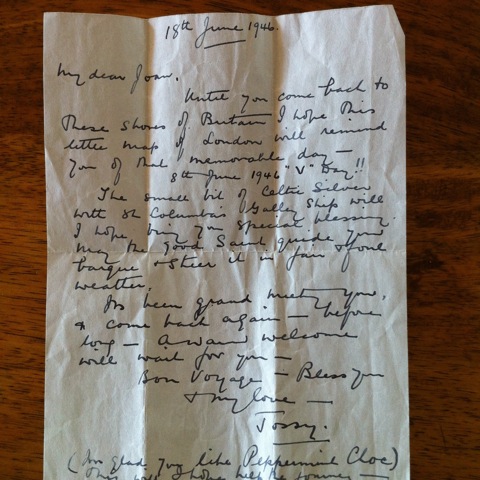 18th June 1946.
My dear Joan,
Until you come back to
These shores of Britain I hope this
little map of London will remind
you of that memorable day —
8th June 1946 "V" Day!!
The small bit of Celtic Silver
with St Columba's Galley Ship will
I hope, bring you special blessing.
May the good Saint guide your
barque & steer it in fair & foul
weather.
Its been grand meeting you,
& come back again — before
long — A warm welcome
will wait for you —
Bon Voyage — Bless you
& my love —
Jossy.
(Im glad you like Peppermint Choc)
This will I hope help the journey —